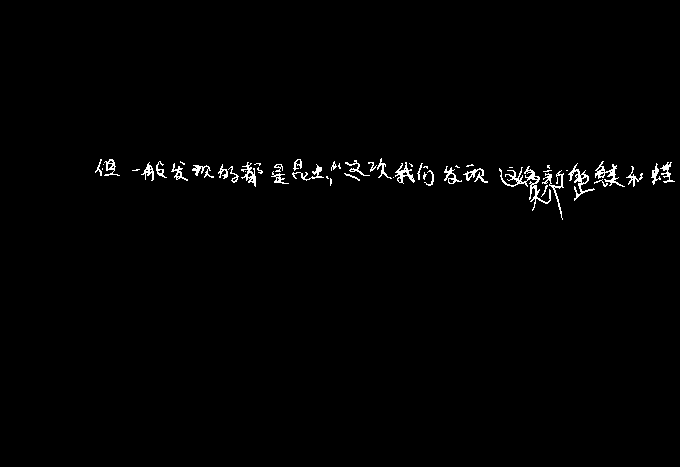 但一般发现的都是昆虫,“这次我们发现这新鱼和蝶